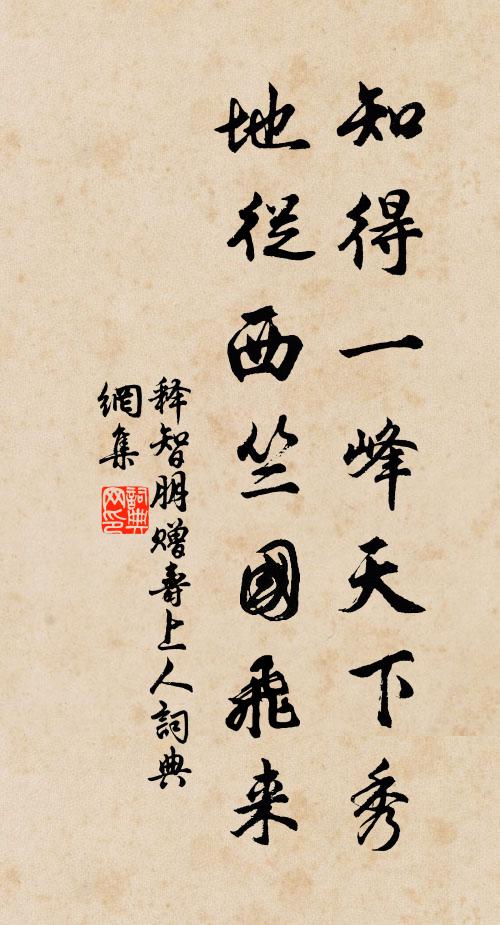 知得一峰天下秀
地從西竺國飛来
释智朋赠壽上人詞典
網集
詞典网印